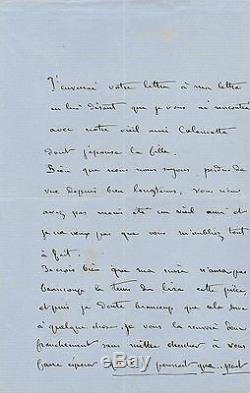 J'enverrai votre lettre à ma mère
en lui disant que je vous ai rencontré
avec notre vieil ami Calamatta
dont j'épouse la fille.
Bien que nous nous soyons perdus de
vue depuis bien longtems, vous n'en
avez pas moins été un vieil ami et
je ne veux pas que vous m'oubliez tout
à fait.
Je crois bien que ma mère n'aura pas
beaucoup le tems de lire cette pièce,
et puis je doute beaucoup que cela serve
à quelque chose, je vous la renvoie donc
franchement sans même chercher à vous
faire espérer qu'on pourrait que.. peut